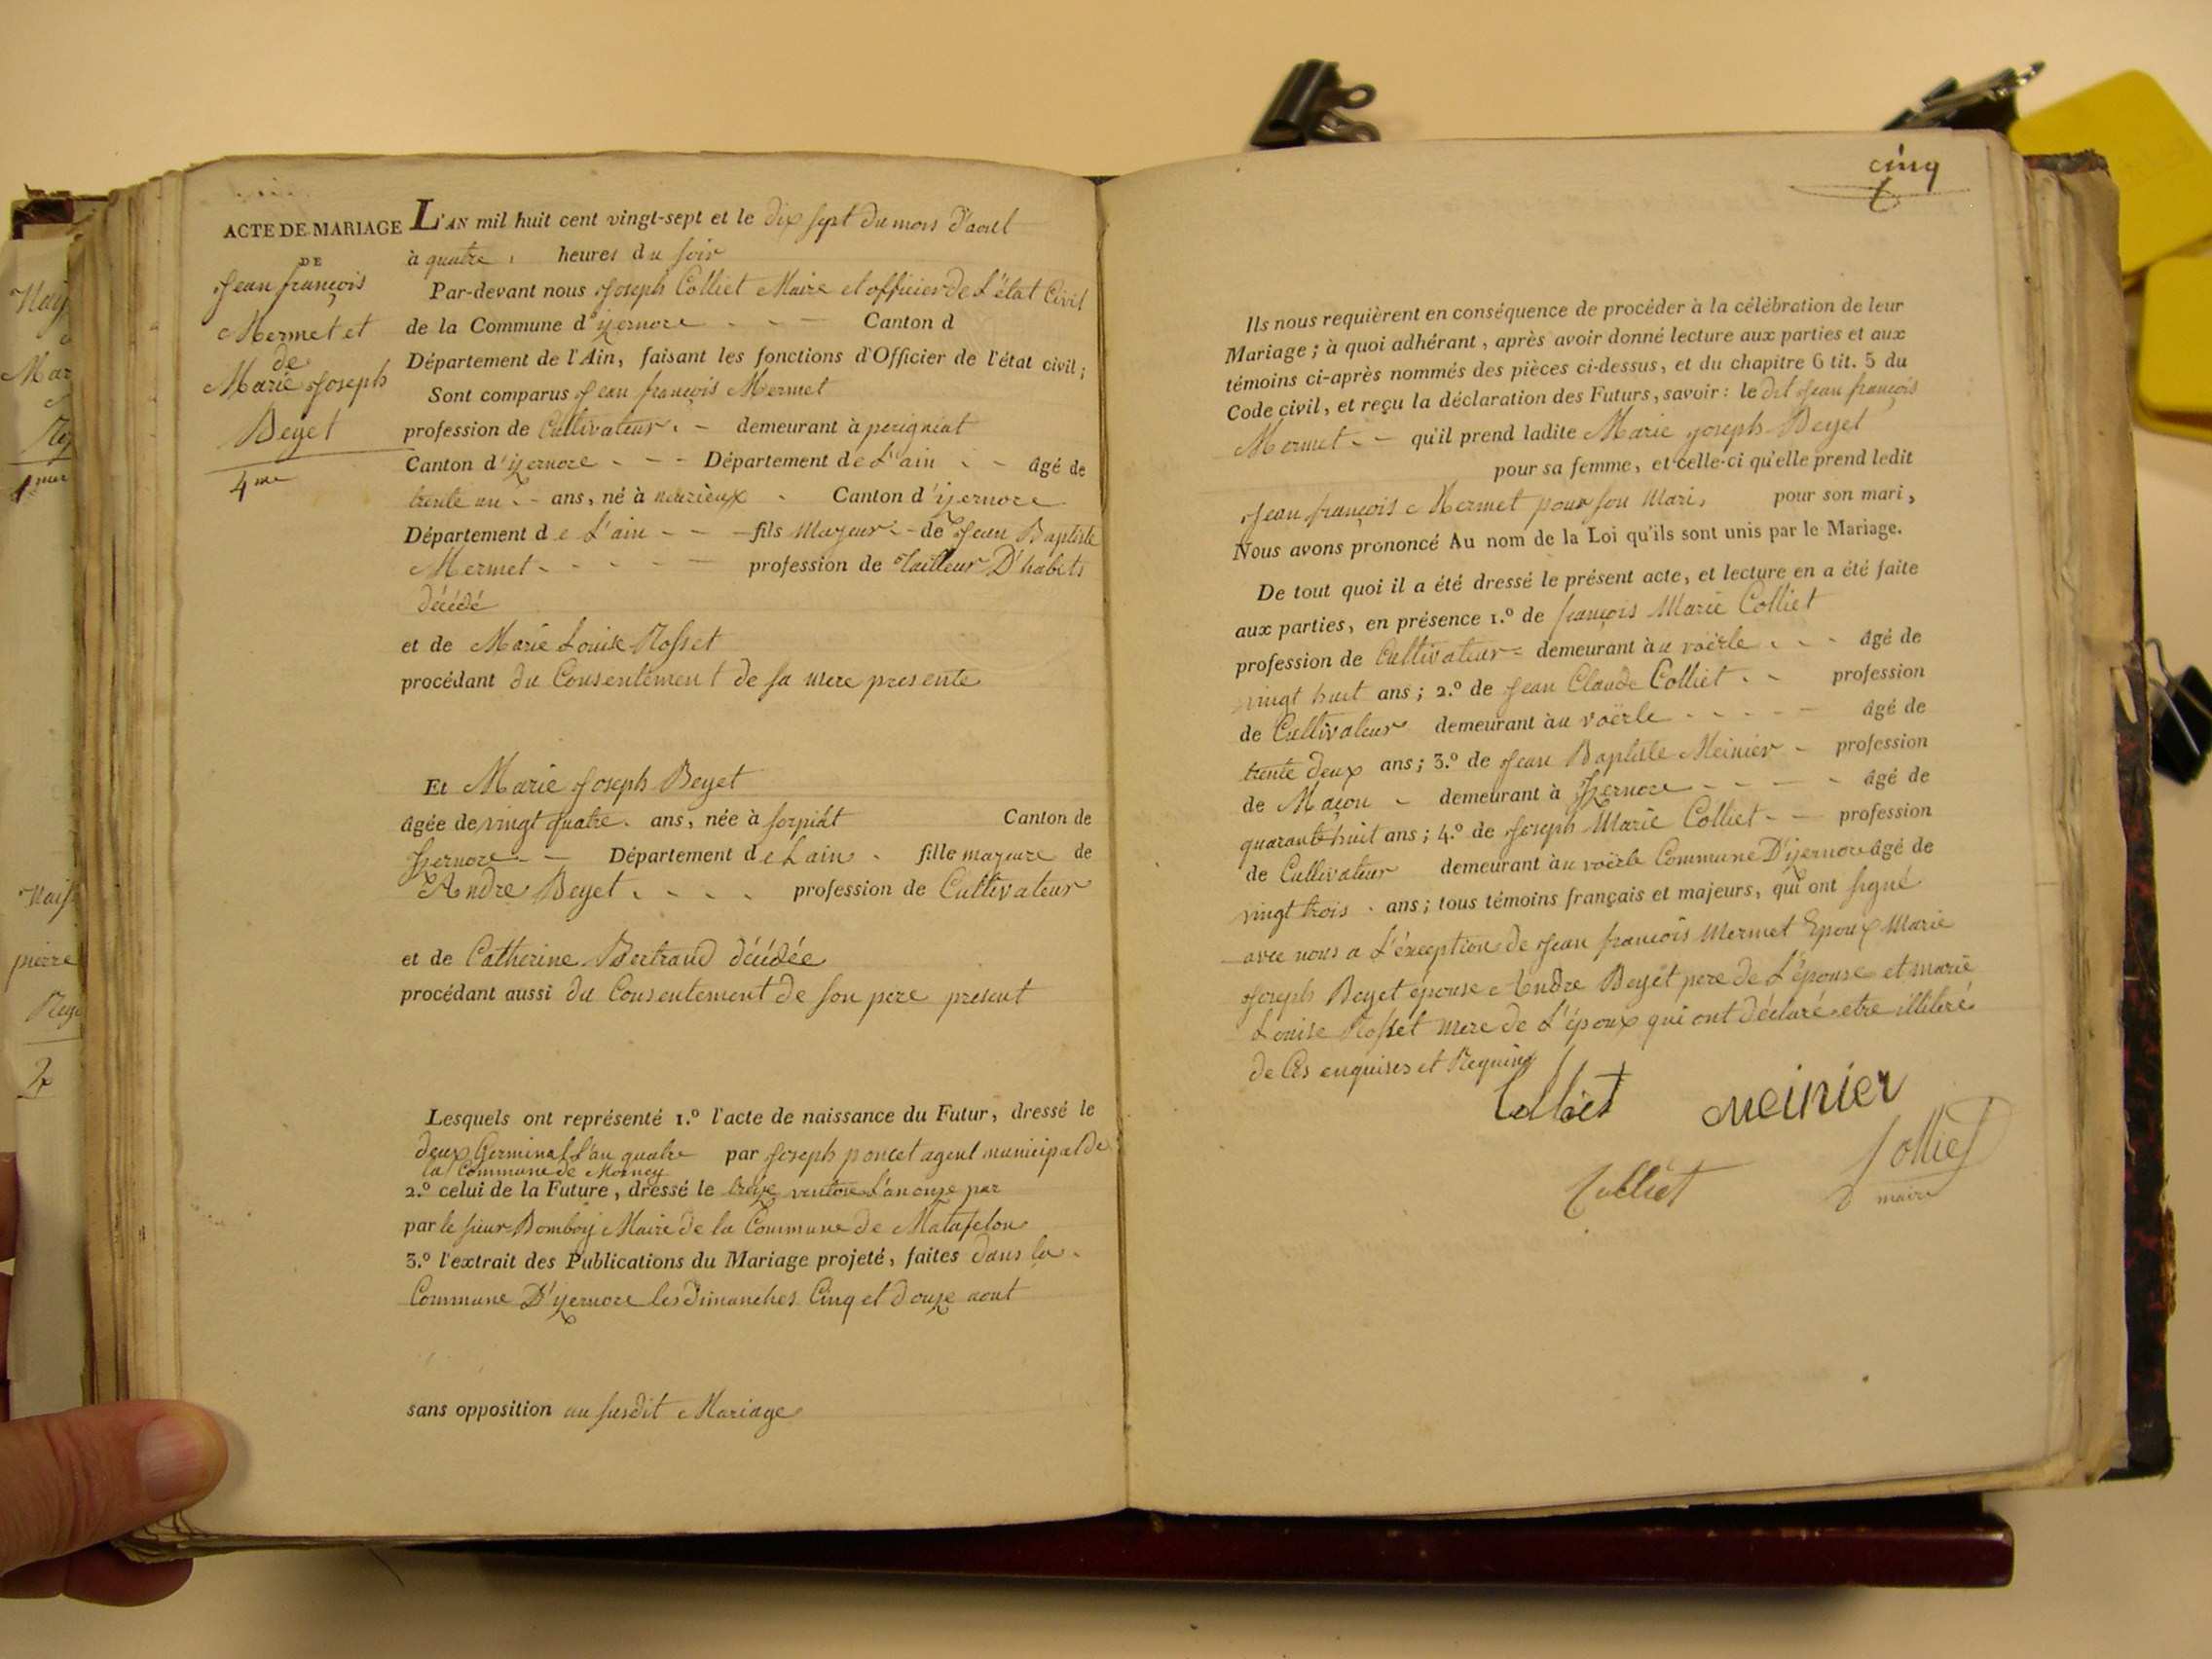 ACTE DE MARIAGE
DE
Jean françois
Mermet et
de
Marie Joseph
Beyet
4me
L'AN mil huit cent vingt-sept et le dix sept du mois d'aout
à quatre heures du soir
Par-devant nous Joseph Colliet Maire et officier de L'état Civil
de la Commune d'yzernore - - - Canton d
Département de l'Ain, faisant les fonctions d'Officier de l'état civil;
Sont comparus Jean françois Mermet
profession de Cultivateur. - demeurant à perigniat
Canton d'yzernore - - - Département de L'ain - - âgé de
trente un - - ans, né à Canton d'yzernore
Département de L'ain - - - fils Majeur - de Jean Baptiste
Mermet - - - - - profession de Tailleur D'habits
décédé
et de Marie Louise Rosset
procédant du Consentement de sa mere presente
Et Marie Joseph Beyet
âgée de vingt quatre. ans, née à sorpiat Canton de
Jzernore - - Département de Lain - fille majeure de
Andre Beyet - - - - profession de Cultivateur
et de Catherine Bertrand décédée
procédant aussi du Consentement de son pere present
Lesquels ont représenté 1.º l'acte de naissance du Futur, dressé le
deux Germinal L'an quatre par Joseph poncet agent municipal de
la Commune de Mornay
2.º celui de la Future, dressé le treize ventose L'an onze par
par le sieur Bomboy Maire de la Commune de Matafelon
3.º l'extrait des Publications du Mariage projeté, faites dans la
Commune D'yzernore les Dimanches Cinq et douze aout
sans opposition au susdit Mariage
cinq
Ils nous requièrent en conséquence de procéder à la célébration de leur
Mariage; à quoi adhérant, après avoir donné lecture aux parties et aux
témoins ci-après nommés des pièces ci-dessus, et du chapitre 6 tit. 5 du
Code civil, et reçu la déclaration des Futurs, savoir: le dit Jean françois
Mermet - - qu'il prend ladite Marie Joseph Beyet
pour sa femme, et celle-ci qu'elle prend ledit
Jean françois Mermet pour son Mari, pour son mari,
Nous avons prononcé Au nom de la Loi qu'ils sont unis par le Mariage.
De tout quoi il a été dressé le présent acte, et lecture en a été faite
aux parties, en présence 1.º de françois Marie Colliet
profession de Cultivateur = demeurant au voërle - - - âgé de
vingt huit ans; 2.º de Jean Claude Colliet - - profession
de Cultivateur demeurant àu voërle - - - - - âgé de
trente deux ans; 3.º de Jean Baptiste Meinier - profession
de Maçon - demeurant à Jzernore - - - - âgé de
quarante huit ans; 4.º de Joseph Marie Colliet - - profession
de Cultivateur demeurant àu voërle Commune D'yzernore âgé de
vingt trois - ans; tous témoins français et majeurs, qui ont signé
avec nous a L'éxception de Jean francois Mermet Epoux Marie
Joseph Beyet épouse Andre Beyet pere de L'épouse et marie
Louise Rosset mere de L'époux qui ont déclaré etre illiteré
de Ces enquises et Requises
Colliet Meinier
Colliet Colliet
maire